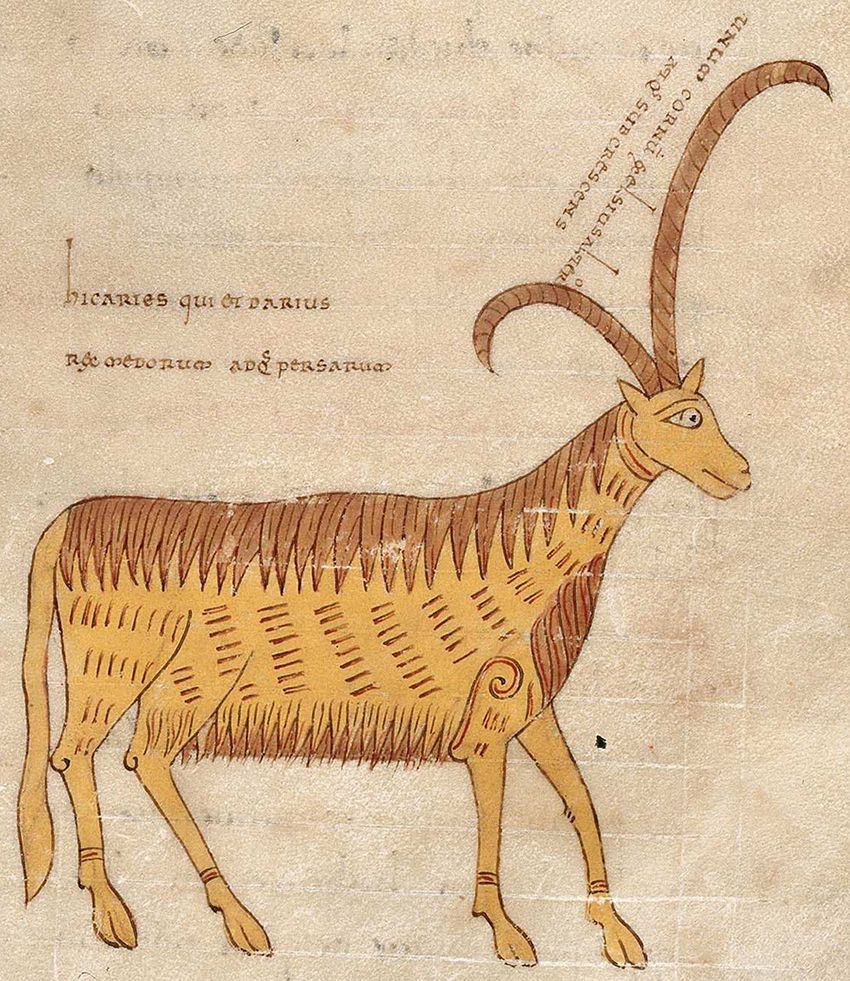 hic aries qui et darius
rex medorum adq; persarum
unum cornū excelsius altero
atq; subcrescens